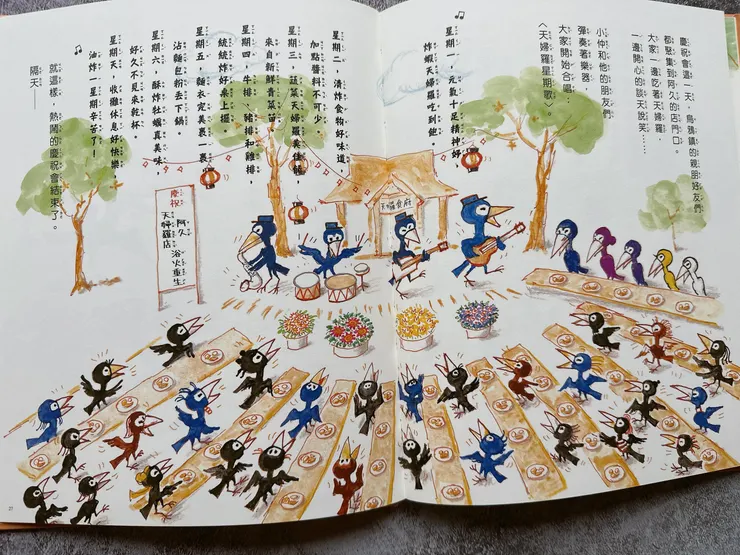 慶祝會這一天，烏鴉鎮的親朋好友們
都聚集到阿久的店門口。
大家一邊吃著天婦羅，
一邊開心的談天說笑……
小仲和他的朋友們
彈奏著樂器，
大家開始合唱：
〈天婦羅星期歌〉。
星期一，元氣十足精神好，
炸蝦天婦羅吃到飽。
星期二，清炸食物好味道，
加點醬料不可少。
星期三，蔬菜天婦羅真佳餚，
來自新鮮青菜苗。
星期四，牛排、豬排和雞排，
統統炸好來上擺。
星期五，麵衣完美裹一裹，
沾麵包粉丟下鍋。
星期六，酥炸牡蠣真美味，
好久不見來乾杯。
星期天，收攤休息好快樂，
油炸一星期辛苦了！
就這樣，熱鬧的慶祝會結束了。
隔天——
天婦羅食府
慶祝
阿久
天婦羅店
浴火重生
27